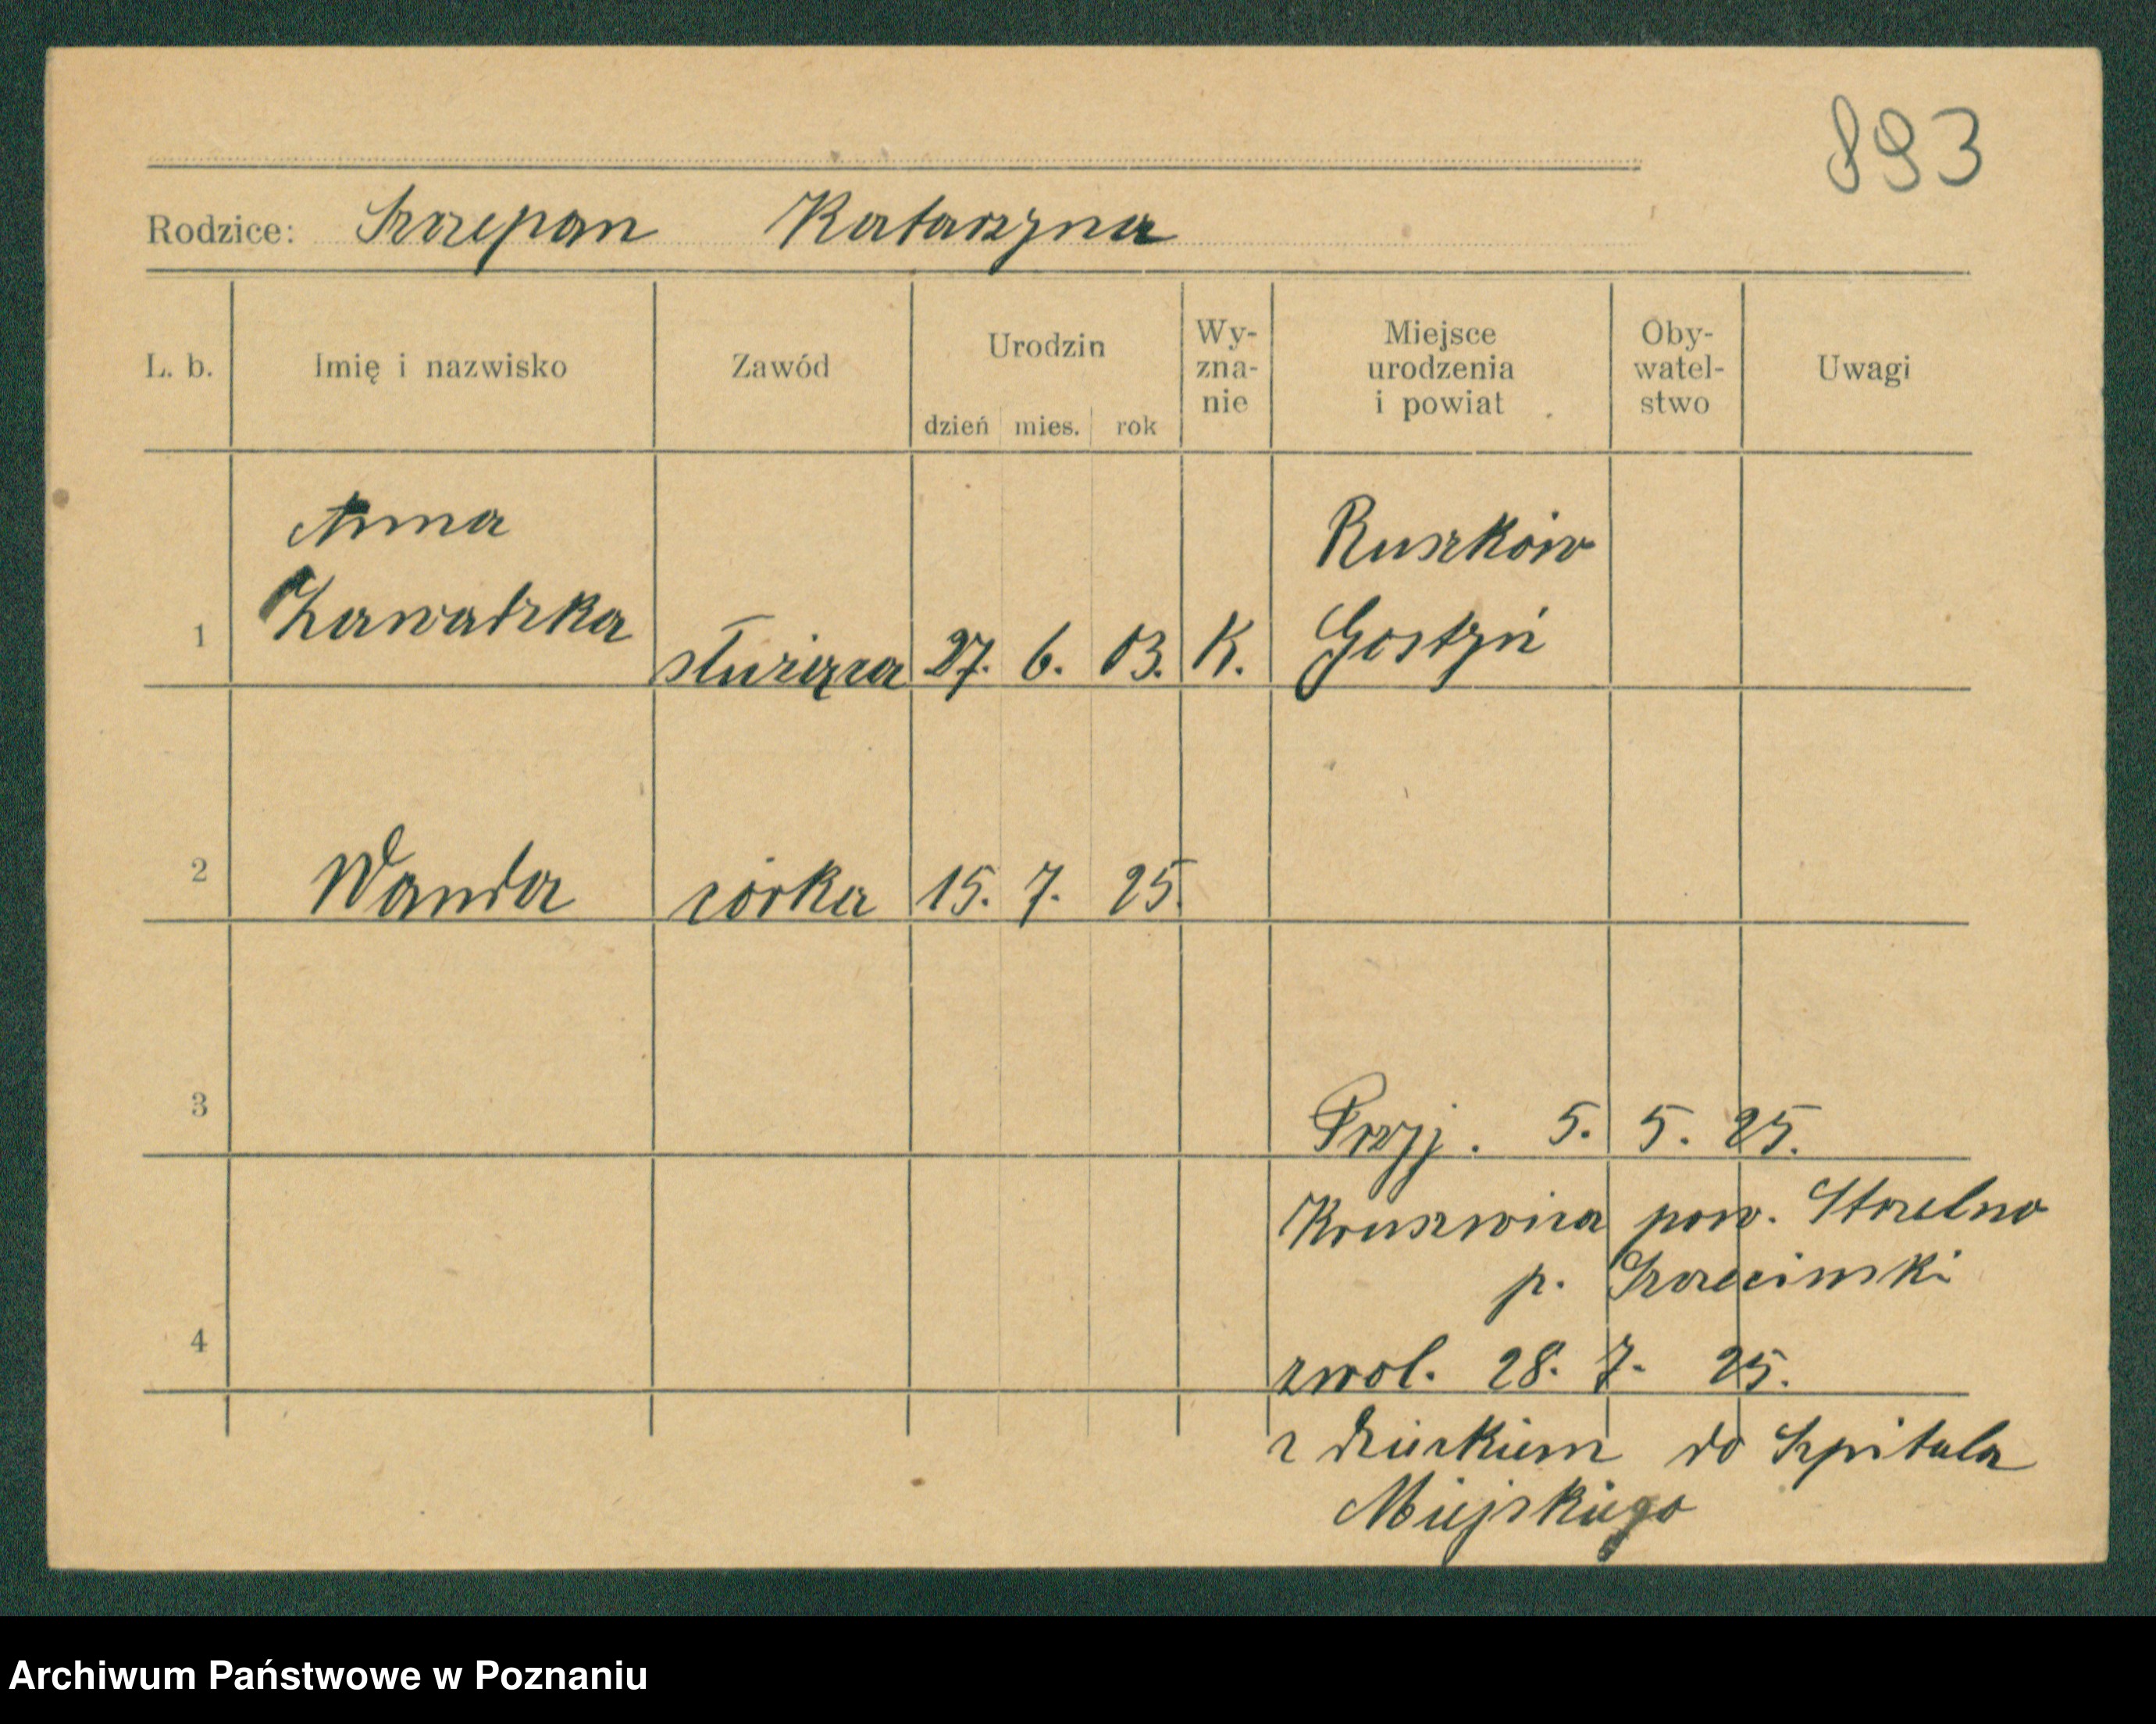 893
Rodzice: Szczepan Katarzyna
L. b. Imię i nazwisko Zawód Urodzin dzień mies. rok Wy-zna-nie Miejsce urodzenia i powiat Oby-watel-stwo Uwagi
Anna Ruszków
1 Zawadzka służąca 27. 6. 03. K. Gostyń
2 Wanda córka 15. 7. 25.
3 Przyj. 5. 5. 25.
Kruszwica pow. Strzelno
p.
4 zwol. 28. 7. 25.
z dzieckiem do Szpitala
Miejskiego
Archiwum Państwowe w Poznaniu